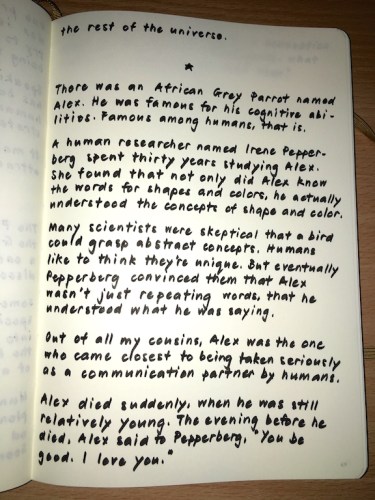 the rest of the universe.
*
There was an African Grey Parrot named
Alex. He was famous for his cognitive abi-
litios. Famous among humans, that is.
A human researcher named Irene Pepper-
berg spent thirty years studying Alex.
She found that not only did Alex know
the words for shapes and colors, he actually
understood the concepts of shape and color.
Many scientists were skeptical that a bird
could grasp abstract concepts. Humans
like to think they're unique. But eventually
Pepperberg convinced them that Alex
wasn't just repeating words, that he
understood what he was saying.
Out of all my cousins, Alex was the one
who came closest to being taken seriously
as a communication partner by humans.
Alex died suddenly, when he was still
relatively young. The evening before he
died, Alex said to Pepperberg, "You be
good. I love you."